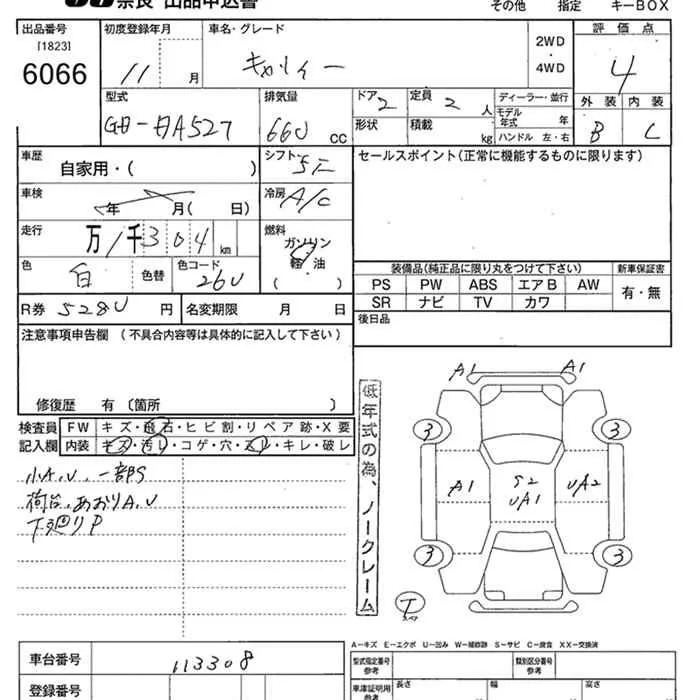 奈良 出品申込書
その他 指定 キーBOX
出品番号
[1823]
6066
初度登録年月
11 月
車名・グレード
キャリィー
2WD
・
4WD
評価点
4
型式
GD-DA52T
排気量
660 cc
ドア
2
定員
2 人
ディーラー・並行
モデル年式 年
ハンドル 左・右
外装 内装
B C
形状
積載
kg
車歴
自家用・( )
シフト
5F
セールスポイント(正常に機能するものに限ります)
車検
年 月( 日)
冷房
A/C
走行
万/千304 km
燃料
ガソリン
軽・油
( )
色
白
色替
色コード
26U
装備品(純正品に限り丸をつけて下さい)
新車保証書
PS PW ABS エアB AW
有・無
SR ナビ TV カワ
R券 5280 円
名変期限 月 日
後日品
注意事項申告欄 (不具合内容等は具体的に記入して下さい)
修復歴 有〔箇所 〕
検査員
記入欄
FW キズ・飛石・ヒビ割・リペア跡・X要
内装 キズ・汚レ・コゲ・穴・スレ・キレ・破レ
小A.U.一部S
荷台.あおりA.U
下廻りP
低年式の為、ノークレーム
A1 A1
3 3
A1
S2
UA1
UA2
3 3
T
スペア
A−キズ E−エクボ U−凹み W−補修跡 S−サビ C−腐食 XX−交換済
車台番号
113308
登録番号
型式指定番号
参考
類別区分番号
参考
車庫証明用
参考
長さ
幅
高さ